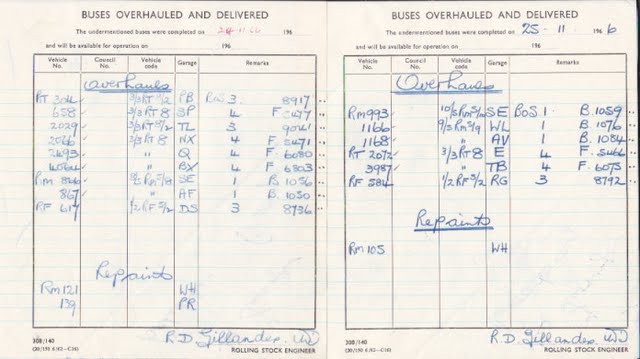 BUSES OVERHAULED AND DELIVERED
The undermentioned buses were completed on 24.11.66 196
and will be available for operation on 196
Vehicle No. Council No. Vehicle code Garage Remarks
Overhauls
RT 304 3/3RT8/2 PB BoS 3. 8917
658 3/3RT8 SP 4 F. 5477
2029 3/3RT8/2 TL 3 9041
2066 3/3RT8 NX 4 F. 5471
2493 " Q 4 F. 6080
4064 " BX 4 F. 6803
Rm 826 SE 1 B. 1056
867 " AF 1 B. 1050
RF 617 1/2 RF 5/2 DS 3 8736
Repaints
Rm 121 WH
139 PR
R.D. Gillanders
308/140
ROLLING STOCK ENGINEER
BUSES OVERHAULED AND DELIVERED
The undermentioned buses were completed on 25 - 11 1966
and will be available for operation on 196
Vehicle No. Council No. Vehicle code Garage Remarks
Overhauls
Rm 993 SE BoS 1 B. 1059
1166 WL 1 B. 1076
1168 AV 1 B. 1084
RT 2072 3/3RT8 E 4 F. 5466
3987 " TB 4 F. 6075
RF 584 1/2 RF 5/2 RG 3 8792
Repaints
Rm 105 WH
R.D. Gillanders
308/140
ROLLING STOCK ENGINEER